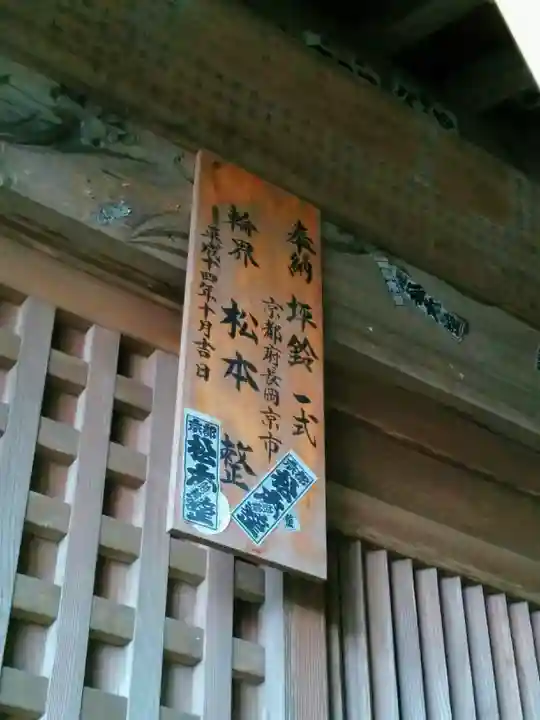 奉納 坪鈴 一式
京都府長岡京市
輪界 松本 整
平成十四年十月吉日
京都
松本整
京都
松本整